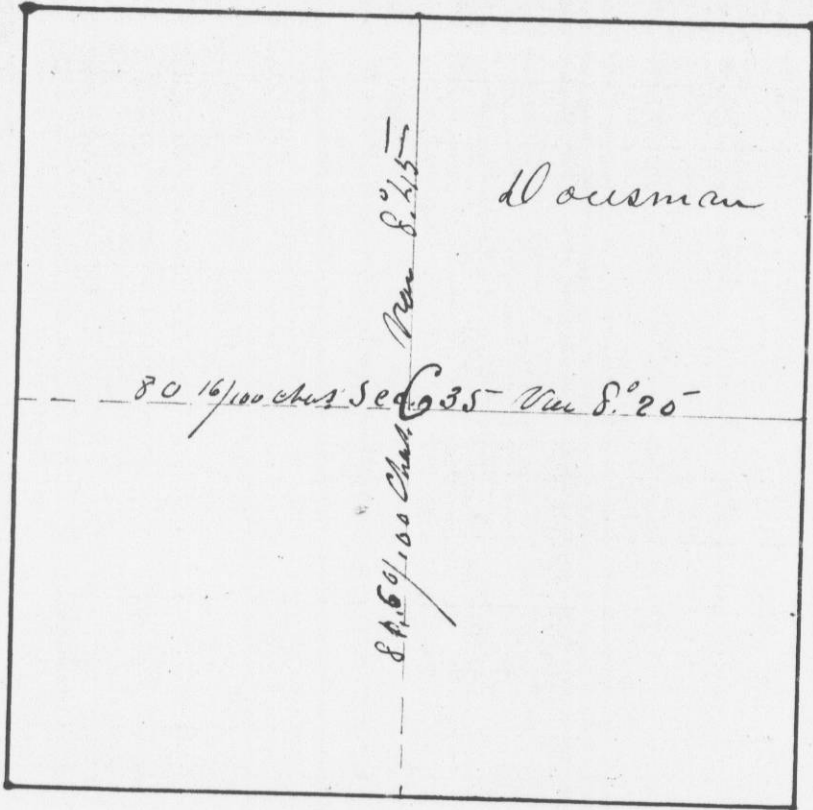 Dousman
80 16/100 chns Sec. 35 Var 8.°25
60/100 Chns Var 8.°45